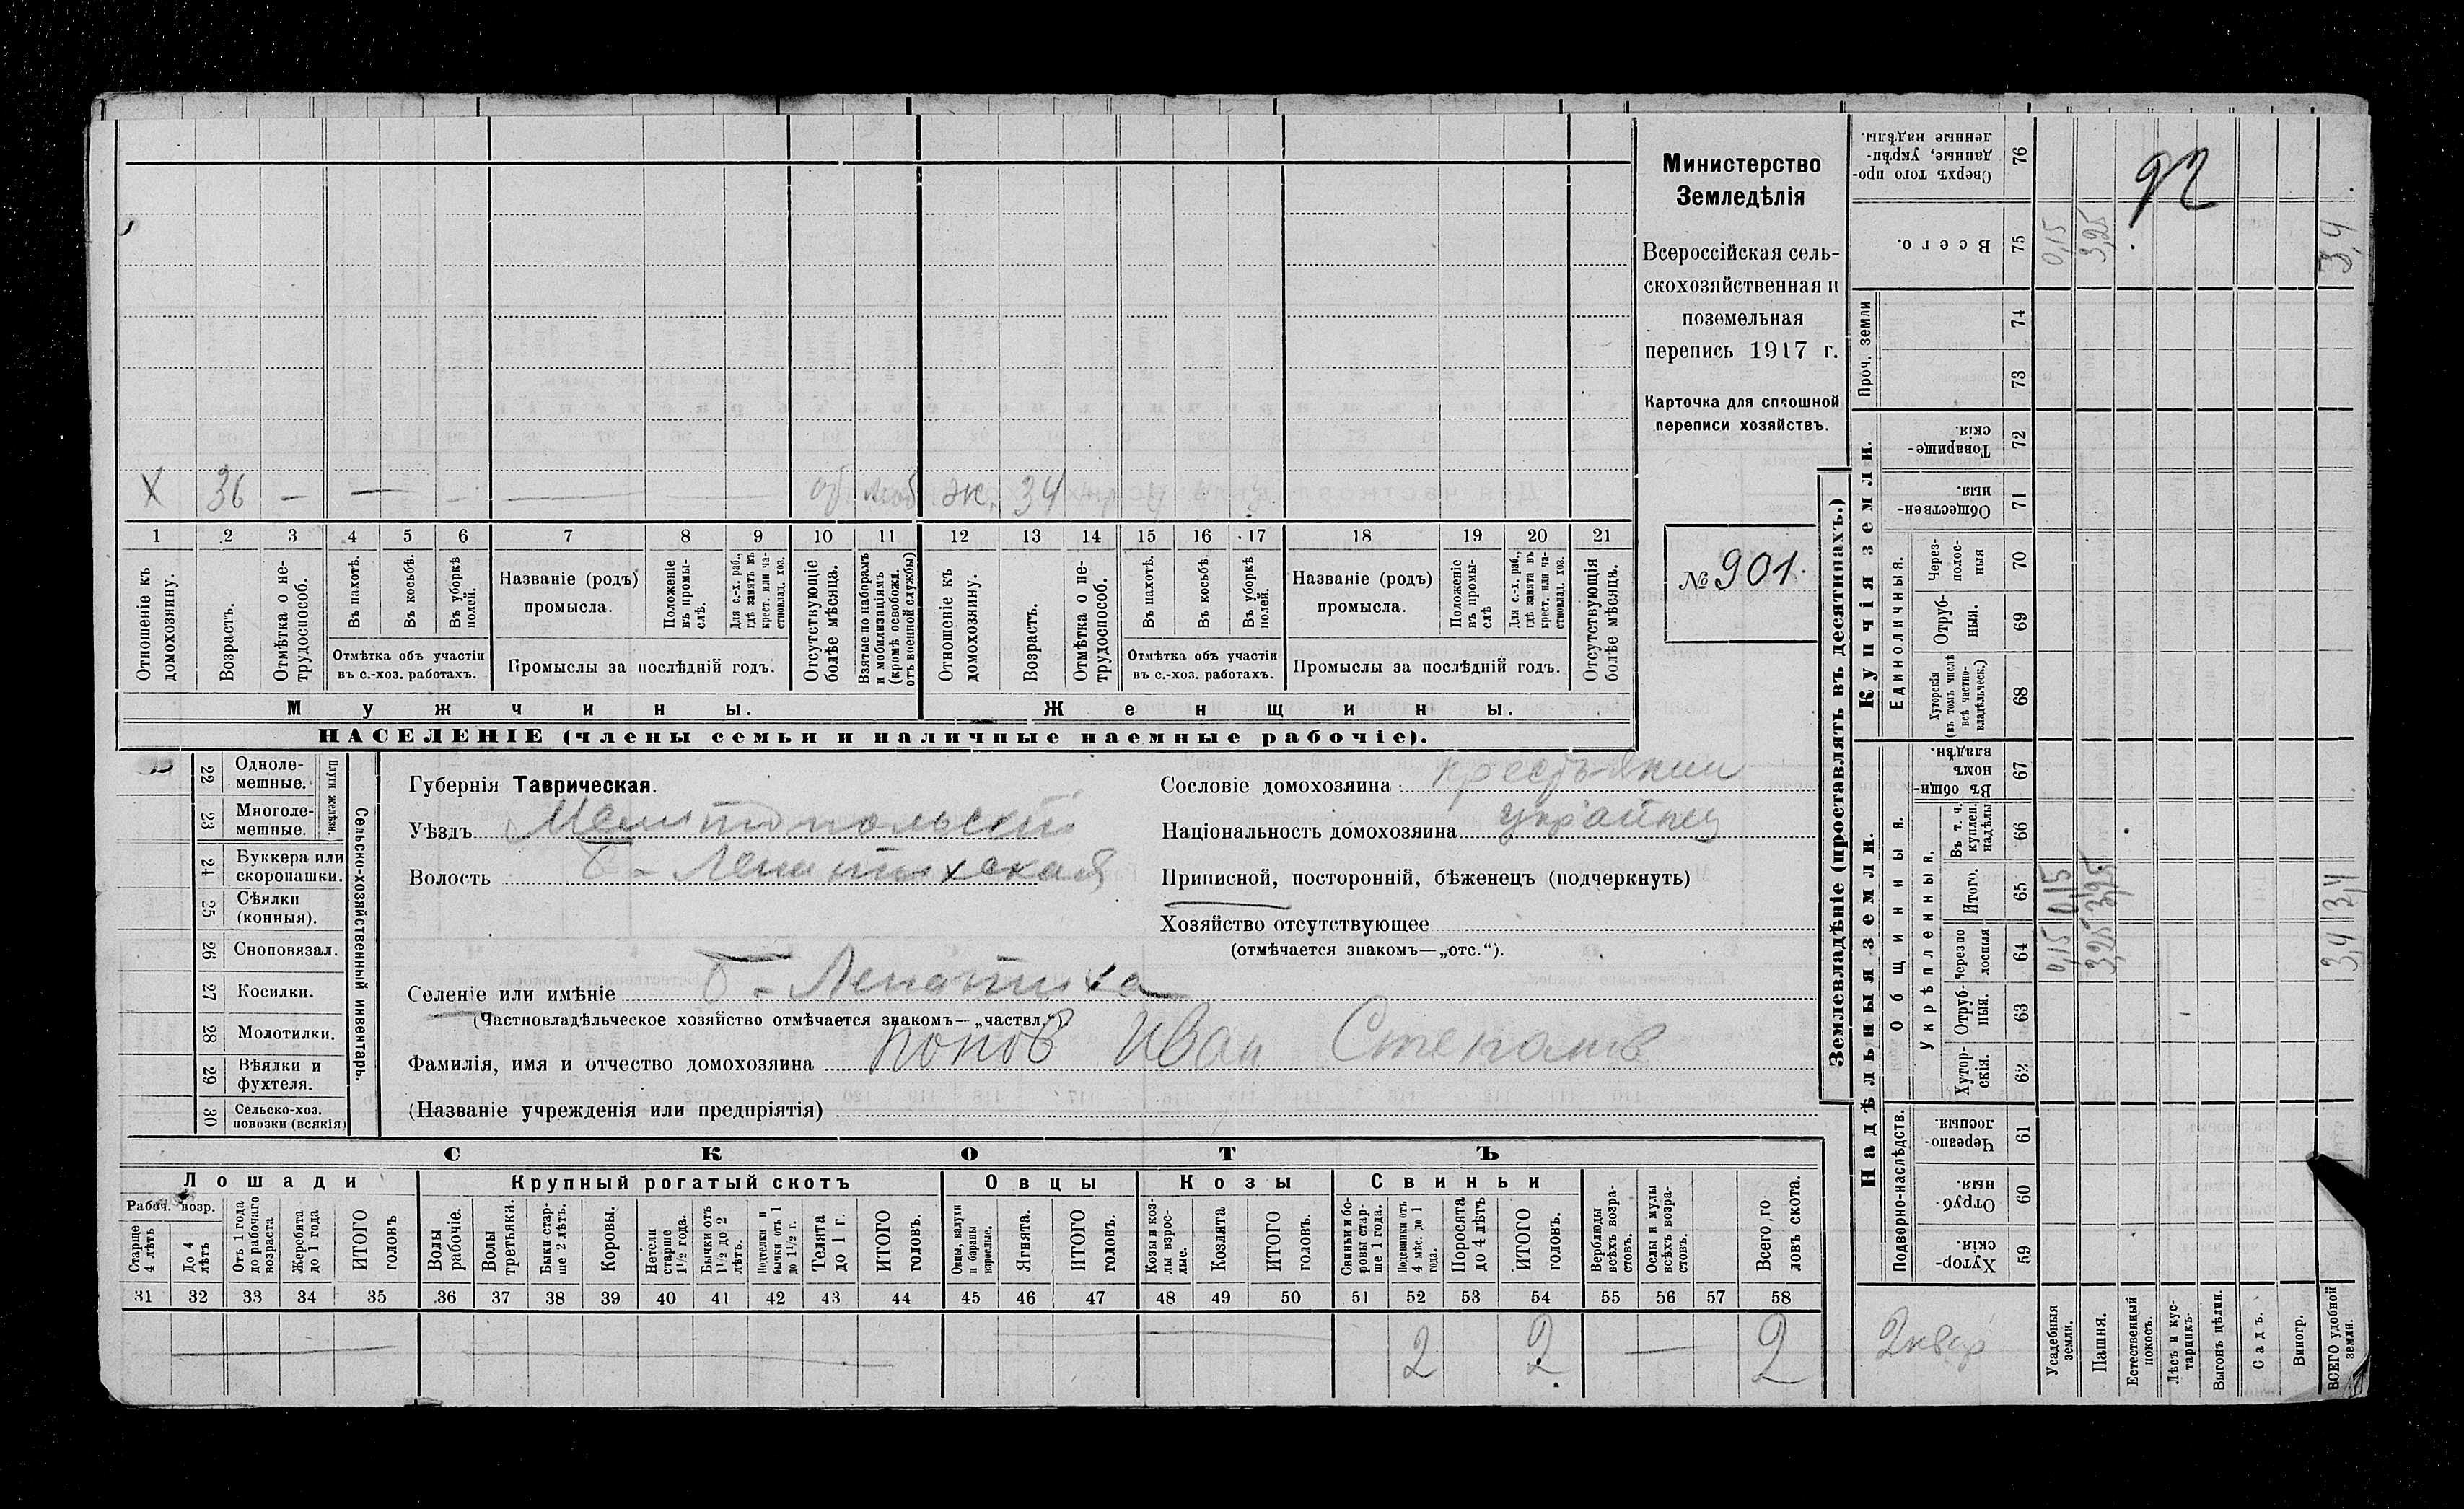 Министерство
Земледѣлія
Всероссійская сель-
скохозяйственная и
поземельная
перепись 1917 г.
Карточка для сплошной
переписи хозяйствъ.
№ 901.
92
Х 36 — — — — — об моб жк. 34
1 2 3 4 5 6 7 8 9 10 11 12 13 14 15 16 17 18 19 20 21
Отношеніе къ домохозяину.
Возрастъ.
Отмѣтка о не-трудоспособ.
Въ пахотѣ.
Въ косьбѣ.
Въ уборкѣ полей.
Отмѣтка объ участіи въ с.-хоз. работахъ.
Названіе (родъ) промысла.
Положеніе въ промы-слѣ.
Для с.-х. раб., гдѣ занятъ въ крест. или ча-стновлад. хоз.
Промыслы за послѣдній годъ.
Отсутствующіе болѣе мѣсяца.
Взятые по наборамъ и мобилизаціямъ (кромѣ освобожд. отъ военной службы)
Отношеніе къ домохозяину.
Возрастъ.
Отмѣтка о не-трудоспособ.
Въ пахотѣ.
Въ косьбѣ.
Въ уборкѣ полей.
Отмѣтка объ участіи въ с.-хоз. работахъ.
Названіе (родъ) промысла.
Положеніе въ промы-слѣ
Для с.-х. раб., гдѣ занята въ крест. или ча-стновлад. хоз.
Промыслы за послѣдній годъ.
Отсутствующія болѣе мѣсяца.
Мужчины.
Женщины.
НАСЕЛЕНІЕ (члены семьи и наличные наемные рабочіе).
Сельско-хозяйственный инвентарь.
Плуги желѣзн.
22 Одноле-мешные.
23 Многоле-мешные.
24 Буккера или скоропашки.
25 Сѣялки (конныя).
26 Сноповязал.
27 Косилки.
28 Молотилки.
29 Вѣялки и фухтеля.
30 Сельско-хоз. повозки (всякія)
Губернія Таврическая.
Уѣздъ Мелитопольскій
Волость Б-Лепатихская
Селеніе или имѣніе Б-Лепатиха
(Частновладѣльческое хозяйство отмѣчается знакомъ—„частвл.“).
Фамилія, имя и отчество домохозяина Попов Иван Степанов
(Названіе учрежденія или предпріятія)
Сословіе домохозяина крестьянин
Національность домохозяина украинец
Приписной, посторонній, бѣженецъ (подчеркнуть)
Хозяйство отсутствующее
(отмѣчается знакомъ—„отс.“).
СКОТЪ
Лошади
Крупный рогатый скотъ
Овцы
Козы
Свиньи
Рабоч. возр.
Старше 4 лѣтъ
До 4 лѣтъ
Отъ 1 года до рабочаго возраста
Жеребята до 1 года
ИТОГО головъ
Волы рабочіе.
Волы третьяки.
Быки стар-ше 2 лѣтъ.
Коровы.
Нетели старше 1½ года.
Бычки отъ 1½ до 2 лѣтъ.
Подтелки и бычки отъ 1 до 1½ г.
Телята до 1 г.
ИТОГО головъ.
Овцы, валухи и бараны взрослые.
Ягнята.
ИТОГО головъ.
Козы и коз-лы взрос-лые.
Козлята
ИТОГО головъ.
Свиньи и бо-ровы стар-ше 1 года.
Подсвинки отъ 4 мѣс. до 1 года.
Поросята до 4 лѣтъ
ИТОГО головъ.
Верблюды всѣхъ возра-стовъ.
Ослы и мулы всѣхъ возра-стовъ.
Всего го-ловъ скота.
31 32 33 34 35 36 37 38 39 40 41 42 43 44 45 46 47 48 49 50 51 52 53 54 55 56 57 58
— — — 2 2 — 2
Землевладѣніе (проставлять въ десятинахъ.)
Надѣльныя земли.
Купчія земли.
Подворно-наслѣдств.
Общинныя.
Укрѣпленныя.
Единоличныя.
Проч. земли
Хутор-скія. 59
Отруб-ныя. 60
Черезпо-лосныя. 61
Хутор-скія. 62
Отруб-ныя. 63
Черезпо-лосныя 64
Итого. 65
Въ т. ч. куплен. надѣлы 66
Въ общин-номъ владѣн. 67
Хуторскія (въ томъ числѣ всѣ частно-владѣльческ.) 68
Отруб-ныя. 69
Через-полос-ныя 70
Обществен-ныя. 71
Товарище-скія. 72
73
74
Всего. 75
Сверхъ того про-данные, укрѣп-ленные надѣлы. 76
Усадебныя земли. 0,15 0,15 0,15
Пашня. 3,25 3,25 3,25
Естественный покосъ.
Лѣсъ и кус-тарникъ.
Выгонъ цѣлин.
Садъ.
Виногр.
ВСЕГО удобной земли. 3,4 3,4 3,4